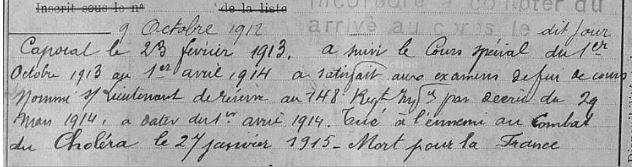 Inscrit sous le n° de la liste
Incorporé à compter du
9 Octobre 1912 arrivé au corps le dit jour
Caporal le 23 février 1913. a suivi le Cours spécial du 1er
Octobre 1913 au 1er avril 1914 a satisfait aux examens de fin de cours
Nommé s/ Lieutenant de réserve au 148 Regt Infie par décret du 29
Mars 1914, a dater du 1er avril 1914. Tué à l'ennemi au Combat
du Choléra le 27 janvier 1915 - Mort pour la France